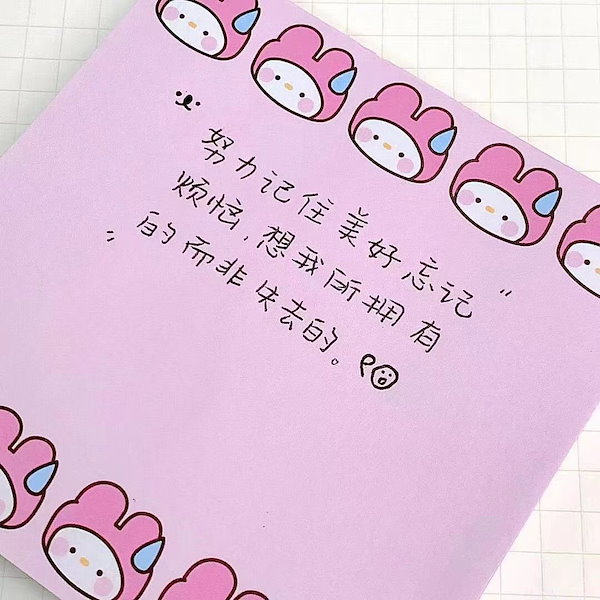 努力记住美好忘记
烦恼,想我所拥有
的而非失去的。